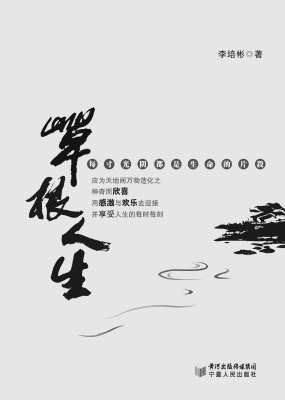 李培彬◎著
草根人生
每寸光阴都是生命的片段
应为天地间万物造化之
神奇而欣喜
用感激与欢乐去迎接
并享受人生的每时每刻
黄河出版传媒集团
宁夏人民出版社